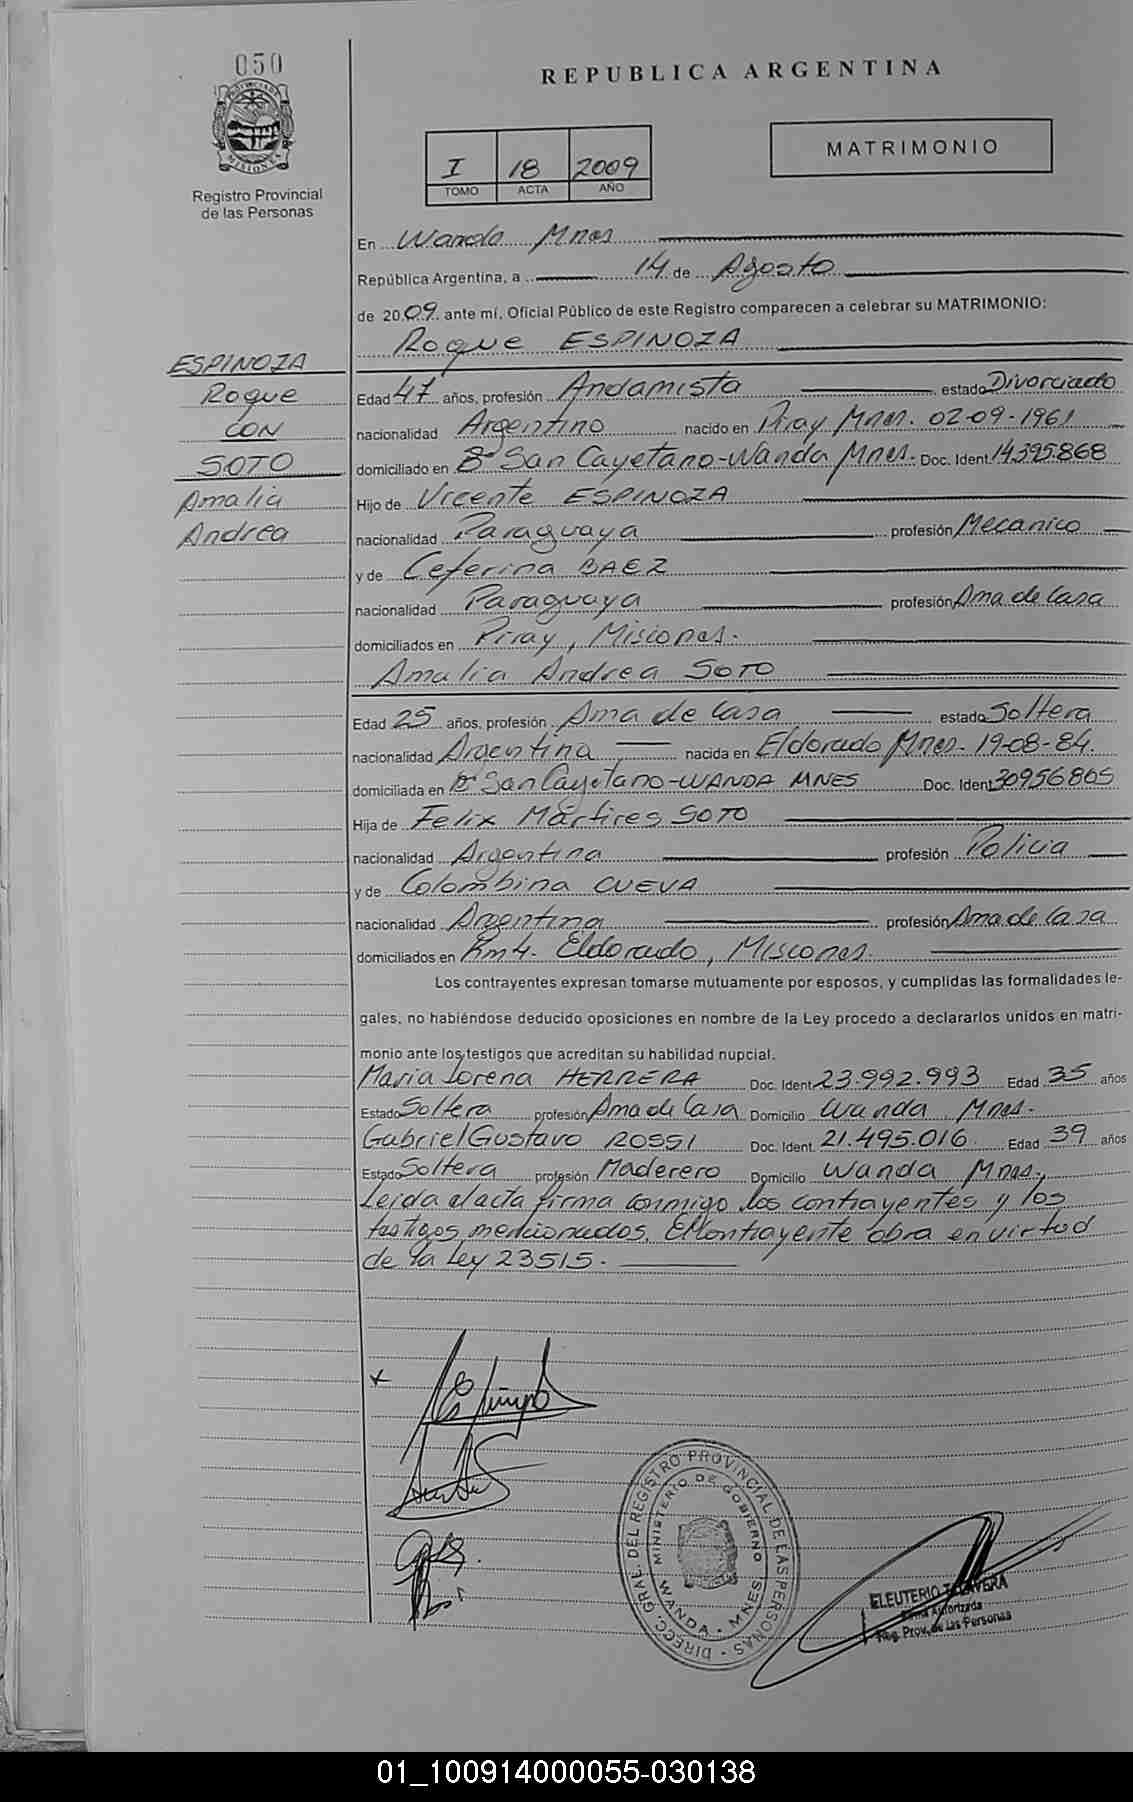 050
REPUBLICA ARGENTINA
PROVINCIA DE MISIONES
Registro Provincial
de las Personas
I 18 2009
TOMO ACTA AÑO
MATRIMONIO
En Wanda Mnes
República Argentina, a 14 de Agosto
de 2009 ante mí, Oficial Público de este Registro comparecen a celebrar su MATRIMONIO:
Roque ESPINOZA
ESPINOZA
Roque
CON
SOTO
Amalia
Andrea
Edad 47 años, profesión Andamista estado Divorciado
nacionalidad Argentino nacido en Piray Mnes. 02-09-1961
domiciliado en Bº San Cayetano-Wanda Mnes. Doc. Ident 14.395.868
Hijo de Vicente ESPINOZA
nacionalidad Paraguaya profesión Mecanico
y de Ceferina BAEZ
nacionalidad Paraguaya profesión Ama de Casa
domiciliados en Piray, Misiones.
Amalia Andrea SOTO
Edad 25 años, profesión Ama de Casa estado Soltera
nacionalidad Argentina nacida en Eldorado Mnes. 19-08-84.
domiciliada en Bº San Cayetano-WANDA MNES Doc. Ident 30956865
Hija de Felix Mártires SOTO
nacionalidad Argentina profesión Policia
y de Colombina CUEVA
nacionalidad Argentina profesión Ama de Casa
domiciliados en Km 4. Eldorado, Misiones.
Los contrayentes expresan tomarse mutuamente por esposos, y cumplidas las formalidades le-
gales, no habiéndose deducido oposiciones en nombre de la Ley procedo a declararlos unidos en matri-
monio ante los testigos que acreditan su habilidad nupcial.
Maria Lorena HERRERA Doc. Ident 23.992.993 Edad 35 años
Estado Soltera profesión Ama de Casa Domicilio Wanda Mnes.
Gabriel Gustavo ROSSI Doc. Ident. 21.495.016 Edad 39 años
Estado Soltera profesión Maderero Domicilio Wanda Mnes.
Leida el acta firma conmigo los contrayentes y los
testigos mencionados. El Contrayente obra en virtud
de la Ley 23515.
DIRECC. GRAL. DEL REGISTRO PROVINCIAL DE LAS PERSONAS
MINISTERIO DE GOBIERNO
WANDA - MNES
ELEUTERIO TALAVERA
Firma Autorizada
Reg. Prov. de las Personas
01_100914000055-030138